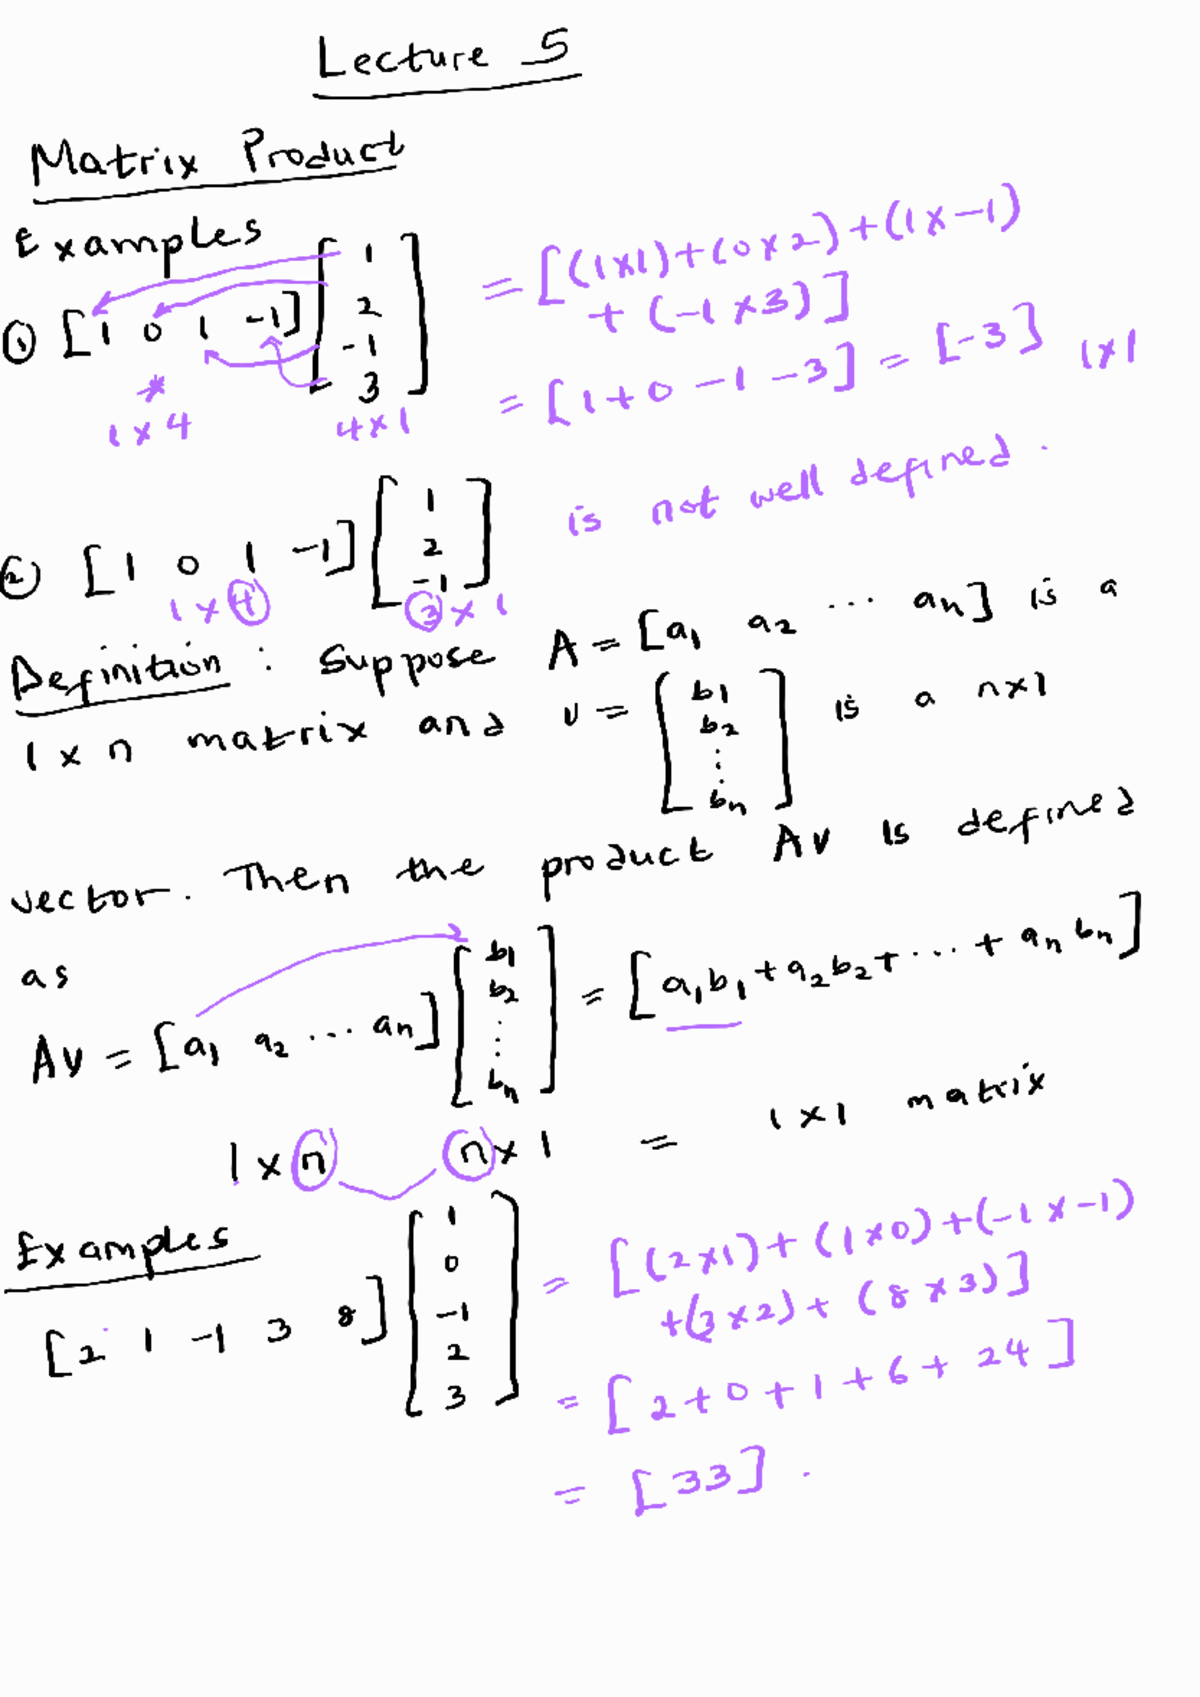 Lecture 5
Matrix Product
Examples
① [1 0 1 -1] [1 2 -1 3] = [(1×1)+(0×2)+(1×-1)
+ (-1×3)]
= [1+0-1-3] = [-3] 1×1
*
1×4 4×1
② [1 0 1 -1] [1 2 -1] is not well defined.
1×4 3×1
Definition: Suppose A = [a₁ a₂ ... aₙ] is a
1×n matrix and v = [b₁ b₂ ⋮ bₙ] is a n×1
vector. Then the product Av is defined
as
Av = [a₁ a₂ ... aₙ] [b₁ b₂ ⋮ bₙ] = [a₁b₁+a₂b₂+...+aₙbₙ]
1×n n×1 = 1×1 matrix
Examples
[2 1 -1 3 8] [1 0 -1 2 3] = [(2×1)+(1×0)+(-1×-1)
+(3×2)+(8×3)]
= [2+0+1+6+24]
= [33].